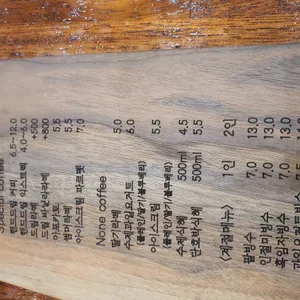 핸드드립 커피 6.5~12.0
핸드드립 익스트렉 4.0~6.0
드립라떼 +500
+800
아포카토 5.5
썸머라떼 5.5
아이스크림 파르펫 7.0
None coffee
딸기라떼 5.0
수제과일요거트 6.0
(플레인/딸기/블루베리)
아이스크림 4.5
(플레인/딸기/블루베리) 5.5
수제식혜 500ml
단호박식혜 500ml
<계절메뉴> 1인 2인
팥빙수 7.0 13.0
인절미빙수 7.0 13.0
흑임자빙수 7.0 13.0